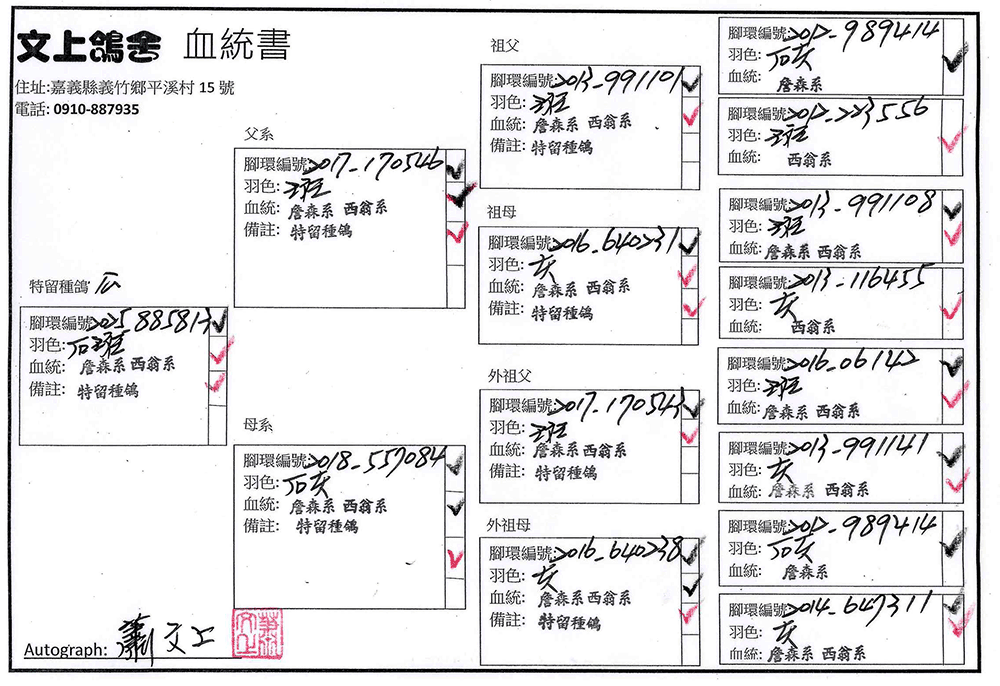 文上鴿舍 血統書
住址:嘉義縣義竹鄉平溪村 15 號
電話: 0910-887935
特留種鴿
腳環編號:2025 885813
羽色:石斑
血統: 詹森系 西翁系
備註: 特留種鴿
父系
腳環編號:2017-170546
羽色:斑
血統: 詹森系 西翁系
備註: 特留種鴿
母系
腳環編號:2018-557084
羽色:石灰
血統: 詹森系 西翁系
備註: 特留種鴿
祖父
腳環編號:2013-991101
羽色:斑
血統: 詹森系 西翁系
備註: 特留種鴿
祖母
腳環編號:2016-640231
羽色:灰
血統: 詹森系 西翁系
備註: 特留種鴿
外祖父
腳環編號:2017-170543
羽色:斑
血統: 詹森系 西翁系
備註: 特留種鴿
外祖母
腳環編號:2016-640238
羽色:灰
血統: 詹森系 西翁系
備註: 特留種鴿
腳環編號:2012-989414
羽色:石灰
血統: 詹森系
腳環編號:2012-223556
羽色:斑
血統: 西翁系
腳環編號:2013-991108
羽色:斑
血統: 詹森系 西翁系
腳環編號:2013-116455
羽色:灰
血統: 西翁系
腳環編號:2016-06142
羽色:斑
血統: 詹森系 西翁系
腳環編號:2013-991141
羽色:灰
血統: 詹森系 西翁系
腳環編號:2012-989414
羽色:石灰
血統: 詹森系
腳環編號:2014-647311
羽色:灰
血統: 詹森系 西翁系
Autograph: 蕭文上
蕭文上